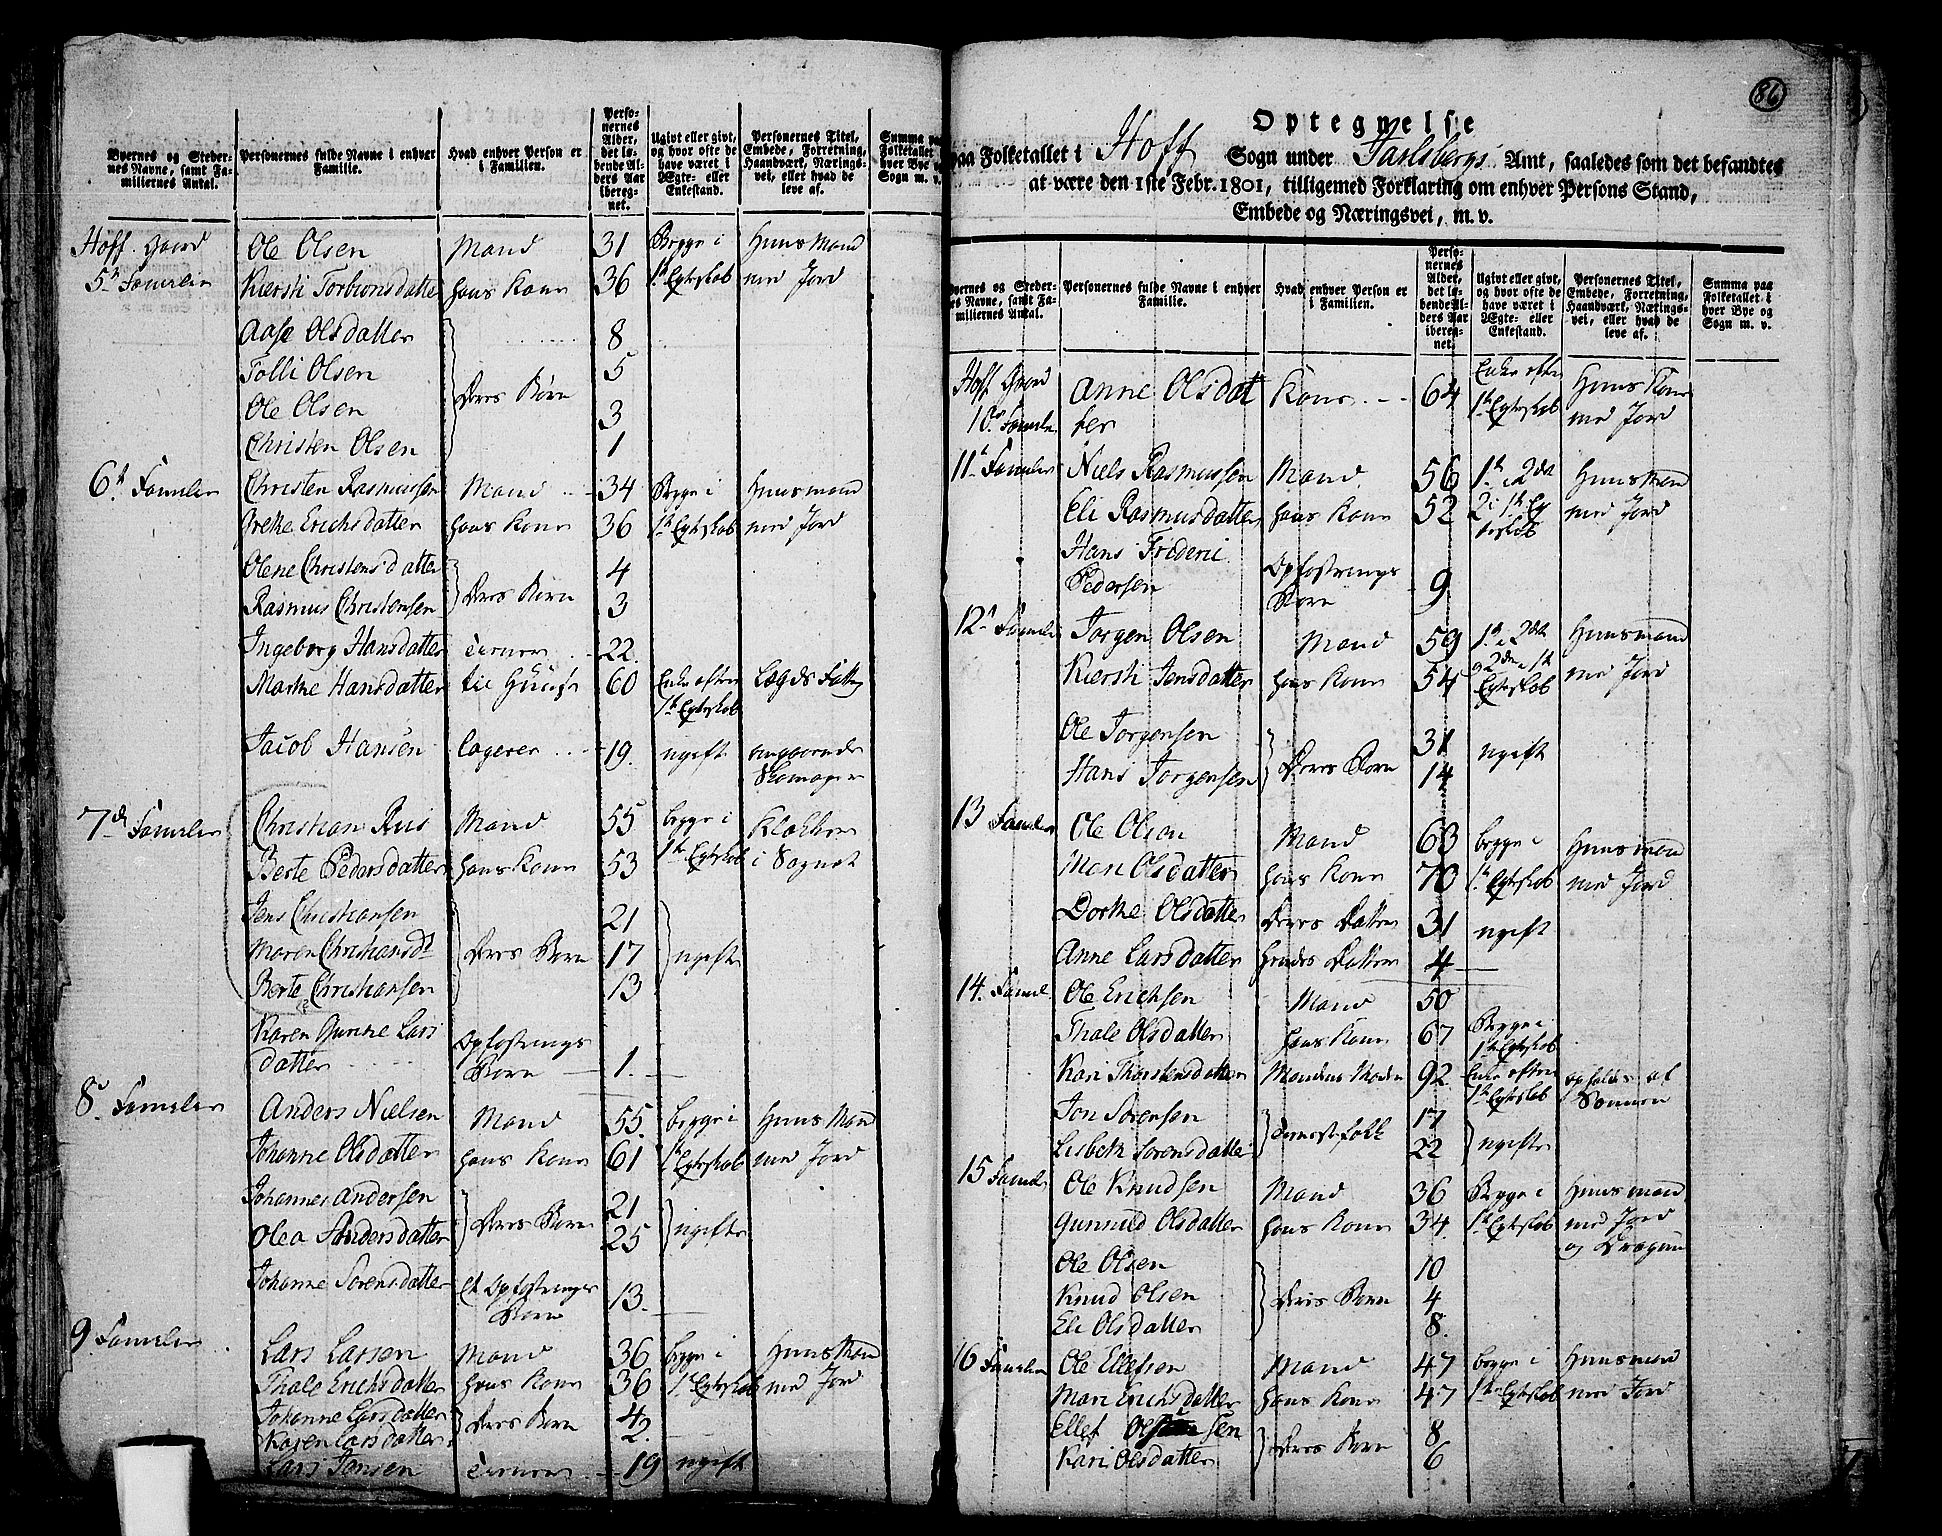 Byernes og Steder- Personernes fulde Navne i enhver Hvad enhver Person er Perso- Ugivt eller givt, Personernes Titel, Summa paa
nes Navne, samt Fa- Familie. i Familien. nernes og hvor ofte de Embede, Forretning, Folketallet
miliernes Antal. Alder, have været i Haandværk, Nærings- hver Bye og
det lø- Ægte- eller vei, eller hvad de Sogn m. v.
bende Al- Enkestand. leve af.
ders Aar
ibereg-
net.
Hoff Gaard Ole Olsen Mand 31 Begge i Huusmand
5te Familie Kiersti Torbionsdatter hans Kone 36 1te Egteskab med Jord
Aase Olsdatter 8
Tolli Olsen 5
Ole Olsen Deres Børn 3
Christen Olsen 1
6te Familie Christen Rasmussen Mand 34 Begge i Huusmand
Grethe Erichsdatter hans Kone 36 1te Egteskab med Jord
Olene Christensdatter 4
Rasmus Christensen Deres Børn 3
Ingeborg Hansdatter 22
Marthe Hansdatter til Huuse 60 Enke efter Lægds Fattig
1te Egteskab
Jacob Hansen logerer 19 ugift
Skomager
7de Familie Christian Ruis Mand 55 begge i Klokker
Berte Pedersdatter hans Kone 53 1te Egteskab i Sognet
Jens Christiansen 21
Maren Christiansdr Deres Børn 17 ugifte
Berte Christiansen 13
Karen Gunthe Lars
datter Opfostrings
Børn 1
8de Familie Anders Nielsen Mand 55 begge i Huusmand
Johanne Olsdatter hans Kone 61 1te Egteskab med Jord
Johannes Andersen 21
Olea Andersdatter Deres Børn 25 ugifte
Johanne Sorensdatter Et Opfostrings
Børn 13
9 Familie Lars Larsen Mand 36 begge i Huusmand
Thale Erichsdatter hans Kone 36 1te Egteskab med Jord
Johanne Larsdatter 4
Karen Larsdatter Deres Børn 2
Lars Jansen 19 ugift
86
Optegnelse
paa Folketallet i Hoff Sogn under Jarlsbergs Amt, saaledes som det befandtes
at være den 1ste Febr. 1801, tilligemed Forklaring om enhver Persons Stand,
Embede og Næringsvei, m. v.
Byernes og Steder- Personernes fulde Navne i enhver Hvad enhver Person er Perso- Ugivt eller givt, Personernes Titel, Summa paa
nes Navne, samt Fa- Familie. i Familien. nernes og hvor ofte de Embede, Forretning, Folketallet i
miliernes Antal. Alder, have været i Haandværk, Nærings- hver Bye og
det lø- Ægte- eller vei, eller hvad de Sogn m. v.
bende Al- Enkestand. leve af.
ders Aar
ibereg-
net.
Hoff Gaard Anne Olsdat Kone 64 Enke efter Huus Kone
10de Familie ter 1te Egteskab med Jord
11te Familie Niels Rasmussen Mand 56 1te i 2det Huusmand
Eli Rasmusdatter hans Kone 52 2 i 1te Eg med Jord
teskab
Hans Frideric
Pedersen Opfostrings
Børn 9
12te Familie Jorgen Olsen Mand 59 1te i 2det Huusmand
Kiersti Jensdatter hans Kone 54 2den i 1te med Jord
Egteskab
Ole Jorgensen 31
Hans Jorgensen Deres Børn 14 ugift
13 Familie Ole Olsen Mand 63 begge i Huusmand
Mari Olsdatter hans Kone 70 1te Egteskab med Jord
Dorthe Olsdatter Deres Datter 31 ugift
Anne Larsdatter hendes Datter 4
14 Famil Ole Erichsen Mand 50
Thale Olsdatter hans Kone 67 Begge i
1te Egteskab
Kari Thorstensdatter Mandens Moder 92 Enke efter opholdes af
1te Egteskab Sønnen
Jon Sorensen 17
Lisbeth Sorensdatter Tienestefolk 22 ugifte
15 Famil Ole Knudsen Mand 36 Begge i Huusmand
Gunnild Olsdatter hans Kone 34 1te Egteskab med Jord
og Dragun
Ole Olsen 10
Knud Olsen Deres Børn 4
Eli Olsdatter 8
16 Familie Ole Ellefsen Mand 47 begge i Huusmand
Mari Erichsdatter hans Kone 47 1te Egteskab med Jord
Ellef Olsen 8
Kari Olsdatter Deres Børn 6